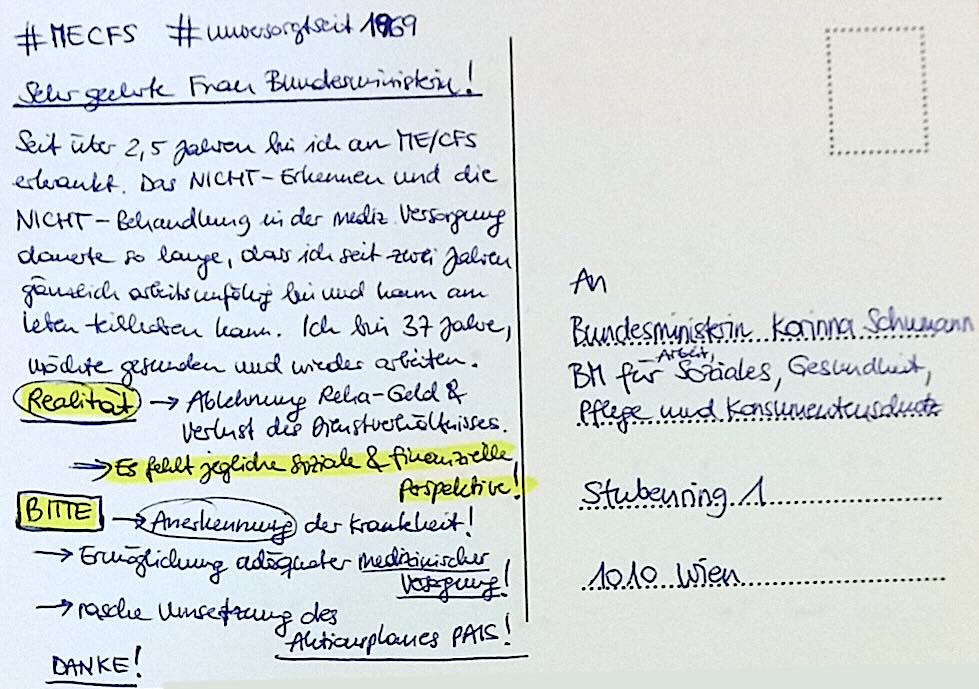 #MECFS #unversorgtseit1969
Sehr geehrte Frau Bundesministerin!
Seit über 2,5 Jahren bin ich an ME/CFS
erkrankt. Das NICHT-Erkennen und die
NICHT-Behandlung in der mediz. Versorgung
dauerte so lange, dass ich seit zwei Jahren
gänzlich arbeitsunfähig bin und kaum am
Leben teilhaben kann. Ich bin 37 Jahre,
möchte gesunden und wieder arbeiten.
Realität → Ablehnung Reha-Geld &
Verlust des Dienstverhältnisses.
⇒ Es fehlt jegliche soziale & finanzielle
Perspektive!
BITTE → Anerkennung der Krankheit!
→ Ermöglichung adäquater medizinischer
Versorgung!
→ rasche Umsetzung des
Aktionsplanes PAIS!
DANKE!
An
Bundesministerin Korinna Schumann
BM für Arbeit, Soziales, Gesundheit,
Pflege und Konsumentenschutz
Stubenring 1
1010 Wien